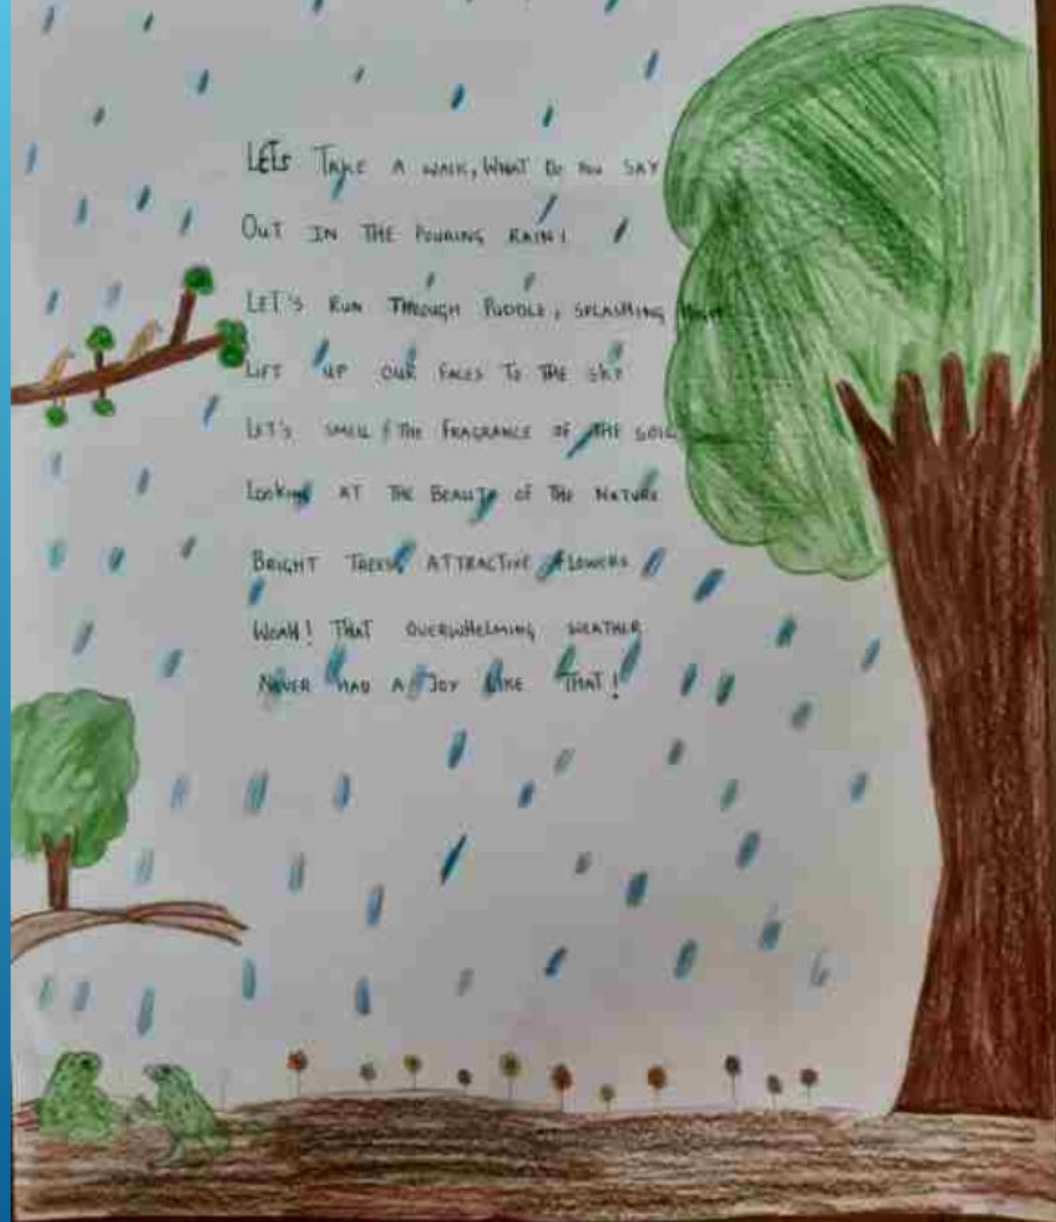 LETS TAKE A WALK, WHAT DO YOU SAY
OUT IN THE POURING RAIN!
LET'S RUN THROUGH PUDDLE, SPLASHING HIGH
LIFT UP OUR FACES TO THE SKY
LET'S SMELL THE FRAGRANCE OF THE SOIL
Looking AT THE BEAUTY OF THE NATURE
BRIGHT TREES, ATTRACTIVE FLOWERS
WOAH! THAT OVERWHELMING WEATHER
NEVER HAD A JOY LIKE THAT!